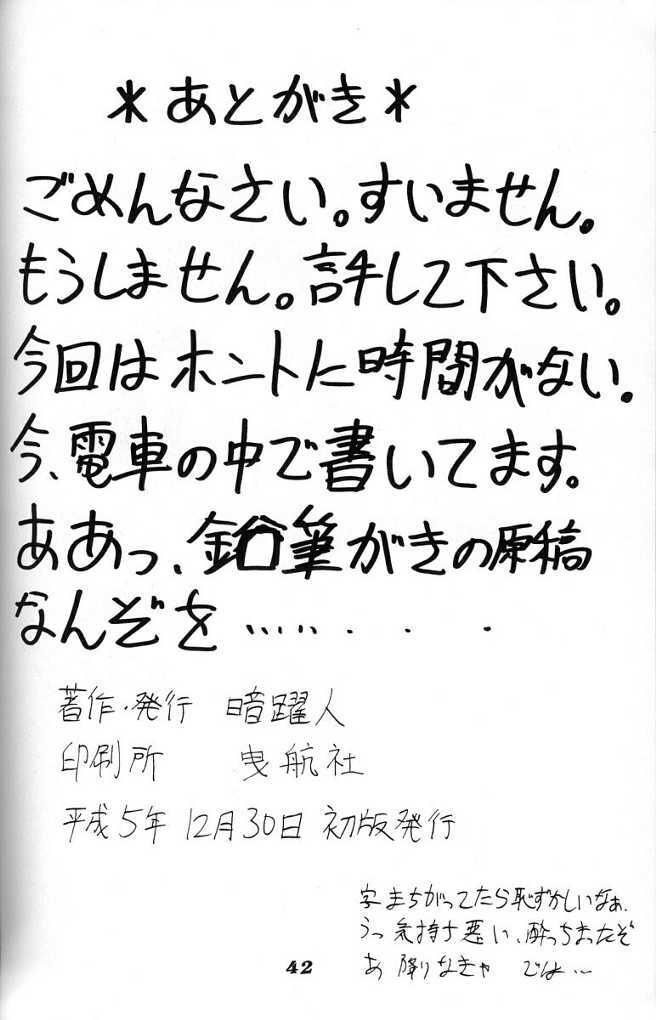 *あとがき*
ごめんなさい。すいません。
もうしません。許して下さい。
今回はホントに時間がない。
今、電車の中で書いてます。
ああっ、鉛筆がきの原稿
なんぞを・・・・・・・・
著作・発行 暗躍人
印刷所 曳航社
平成5年12月30日 初版発行
字まちがってたら恥ずかしいなぁ、
うっ気持ち悪い、酔っちまったぞ
あ 降りなきゃ では…
42